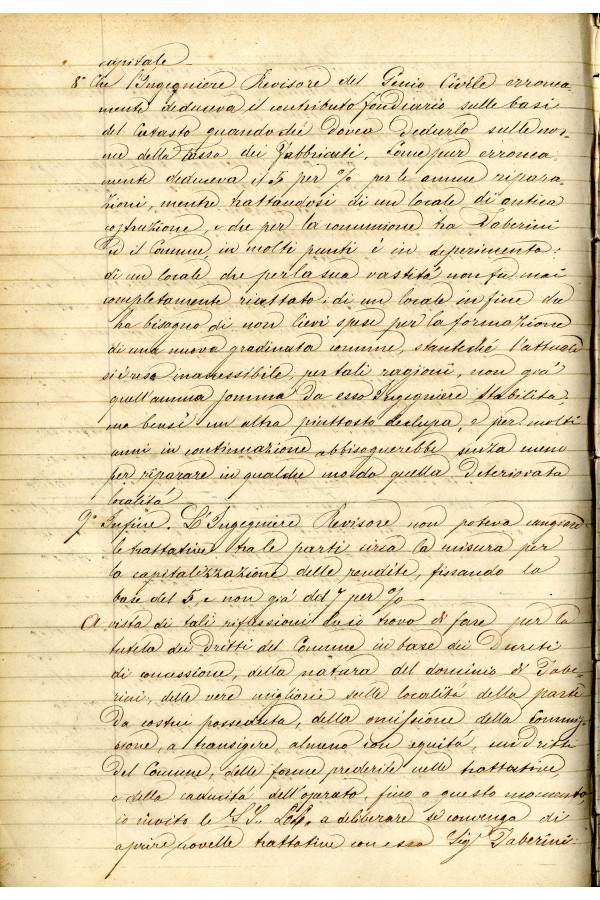 capitale
8° Che l'Ingegniere Revisore del Genio Civile erronea-
mente deduceva il contributo fondiario sulle basi
del Catasto quandoché dovea dedurlo sulle nor-
me della tassa dei Fabbricati. Come pur erronea-
mente deduceva il 5 per % per le annue ripara-
zioni, mentre trattandosi di un locale di antica
costruzione, e che per la comunione tra Taberini
ed il Comune, in molti punti è in deperimento:
di un locale che per la sua vastità non fu mai
completamente riattato: di un locale in fine che
ha bisogno di non lievi spese per la formazione
di una nuova gradinata comune, stanteché l'attuale
si è resa inaccessibile, per tali ragioni, non già
quell'annua somma da esso Ingegniere stabilita:
ma bensì un altra piuttosto desupra, e per molti
anni in continuazione abbisognerebbe senza meno
per riparare in qualche modo quella deteriorata
località
9° Infine. L'Ingegniere Revisore non poteva cangiare
le trattative tra le parti circa la misura per
la capitalizzazione delle rendite, fissando la
base del 5, e non già del 7 per %
A vista di tali riflessioni che io trovo di fare per la
tutela dei dritti del Comune in base dei Decreti
di concessione, della natura del dominio di Tabe-
rini, delle vere migliorie sulle località della parte
da costui posseduta, della omissione della Commis-
sione, a transigere, almeno con equità, sui dritti
del Comune, delle forme prederite nelle trattative
e della caducità dell'operato fino a questo momento,
io invito le SS. LL. a deliberare se convenga di
aprire novelle trattative con esso Sig Taberini: